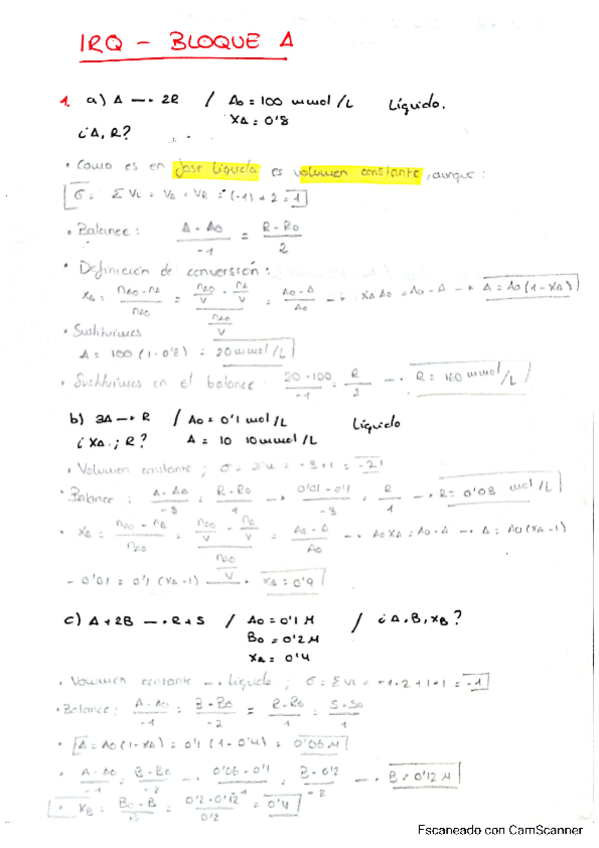 IRQ - BLOQUE A
1. a) A → 2R / A₀ = 100 mmol/L Líquido.
XA = 0'8
¿A, R?
• Como es en fase líquida es volumen constante, aunque:
σ = Σ νi = νA + νR = (-1) + 2 = 1
• Balance: (A - A₀)/-1 = (R - R₀)/2
• Definición de conversión:
XA = (nA₀ - nA)/nA₀ = (nA₀/V - nA/V)/(nA₀/V) = (A₀ - A)/A₀ → XA A₀ = A₀ - A → A = A₀(1 - XA)
• Sustituimos
A = 100 (1 - 0'8) = 20 mmol/L
• Sustituimos en el balance: (20 - 100)/-1 = R/2 → R = 160 mmol/L
b) 3A → R / A₀ = 0'1 mol/L Líquido
¿XA ; R? A = 10 10 mmol/L
• Volumen constante ; σ = Σ νi = -3 + 1 = -2
• Balance: (A - A₀)/-3 = (R - R₀)/1 → (0'01 - 0'1)/-3 = R/1 → R = 0'08 mol/L
• XA = (nA₀ - nA)/nA₀ = (nA₀/V - nA/V)/(nA₀/V) = (A₀ - A)/A₀ → A₀ XA = A₀ - A → A = A₀ (XA - 1)
- 0'01 = 0'1 (XA - 1) XA = 0'9
c) A + 2B → R + S / A₀ = 0'1 M / ¿A, B, XB?
B₀ = 0'2 M
XA = 0'4
• Volumen constante → Líquido ; σ = Σ νi = -1 - 2 + 1 + 1 = -1
• Balance: (A - A₀)/-1 = (B - B₀)/-2 = (R - R₀)/1 = (S - S₀)/1
• A = A₀(1 - XA) = 0'1 (1 - 0'4) = 0'06 M
• (A - A₀)/-1 = (B - B₀)/-2 → (0'06 - 0'1)/-1 = (B - 0'2)/-2 → B = 0'12 M
• XB = (B₀ - B)/B₀ = (0'2 - 0'12)/0'2 = 0'4
Escaneado con CamScanner